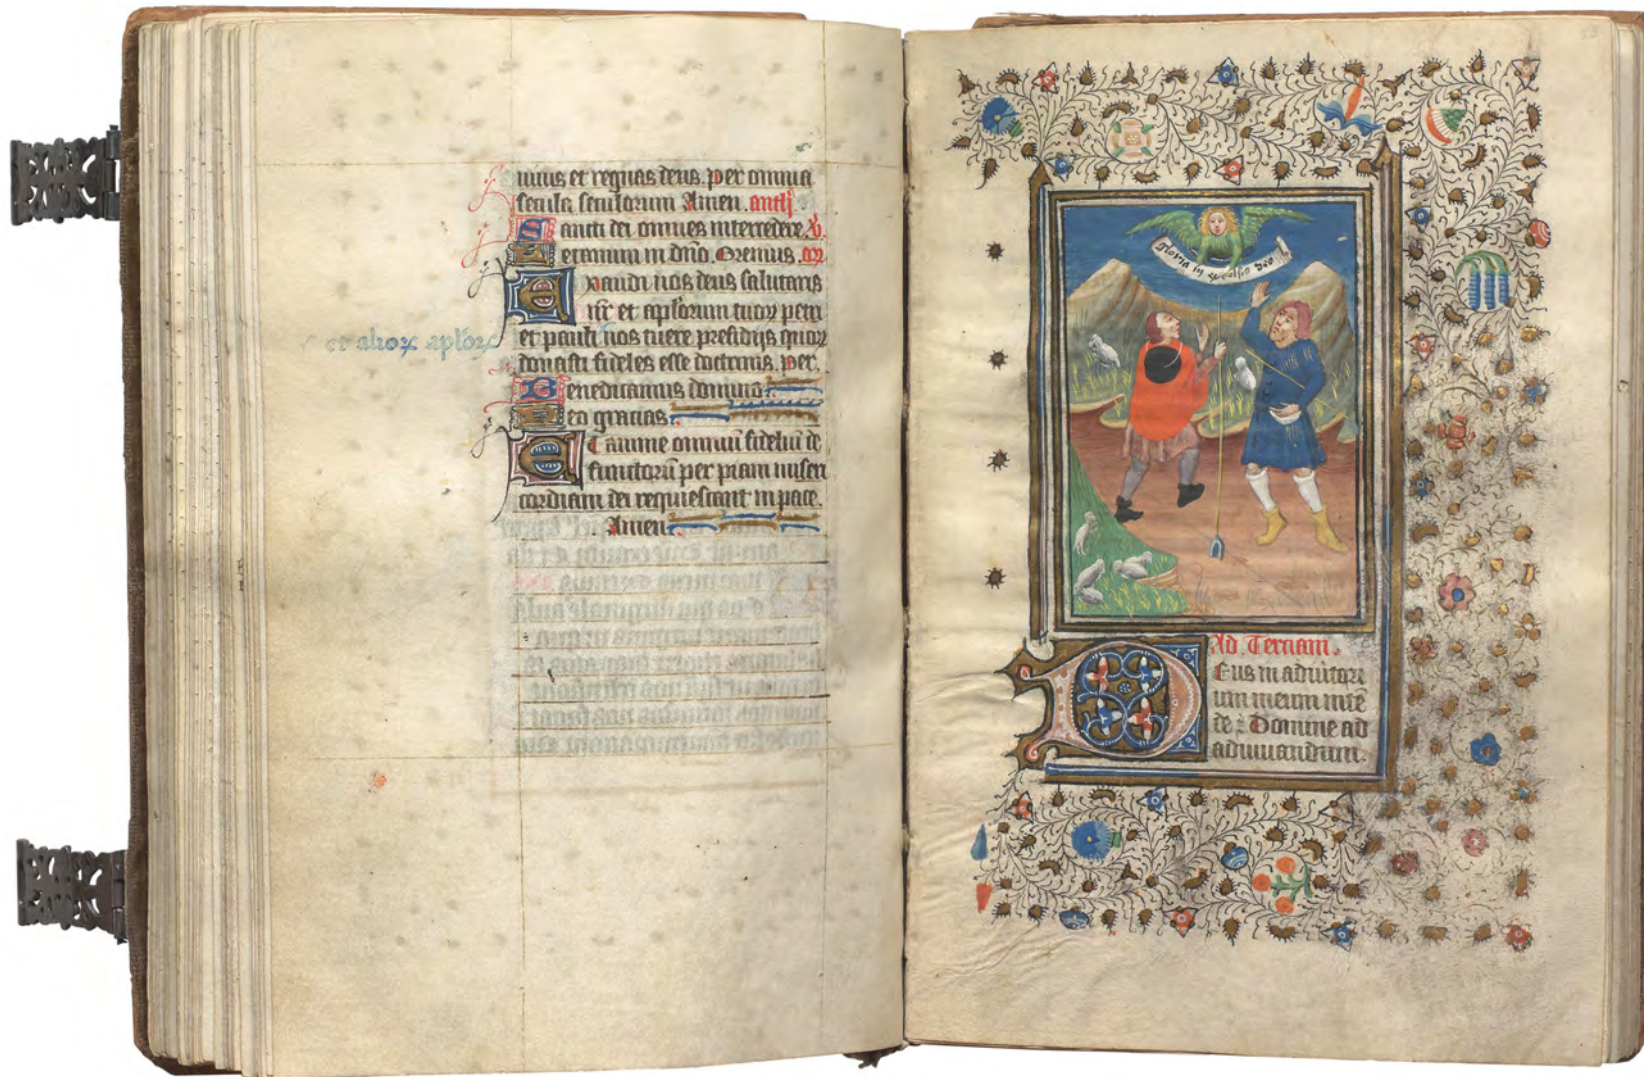 uiuis et regnas deus. Per omnia
secula seculorum Amen. anth̄
Sancti dei omnes intercedere. V̄.
Letamini in dn̄o. Oremus. or̄
Exaudi nos deus salutaris
nr̄ et aplōrum tuoꝝ petri
et pauli nos tuere presidijs quoꝝ
et alioꝝ aplōꝝ
donasti fideles esse doctrinis. Per.
Benedicamus domino.
Deo gracias.
Et anime omniū fideliū de
functorū per piam miseri
cordiam dei requiescant in pace.
Amen.
gloria in excelsis deo
Ad Terciam.
Deus in adiutori
um meum intē
de : Domine ad
adiuuandum.